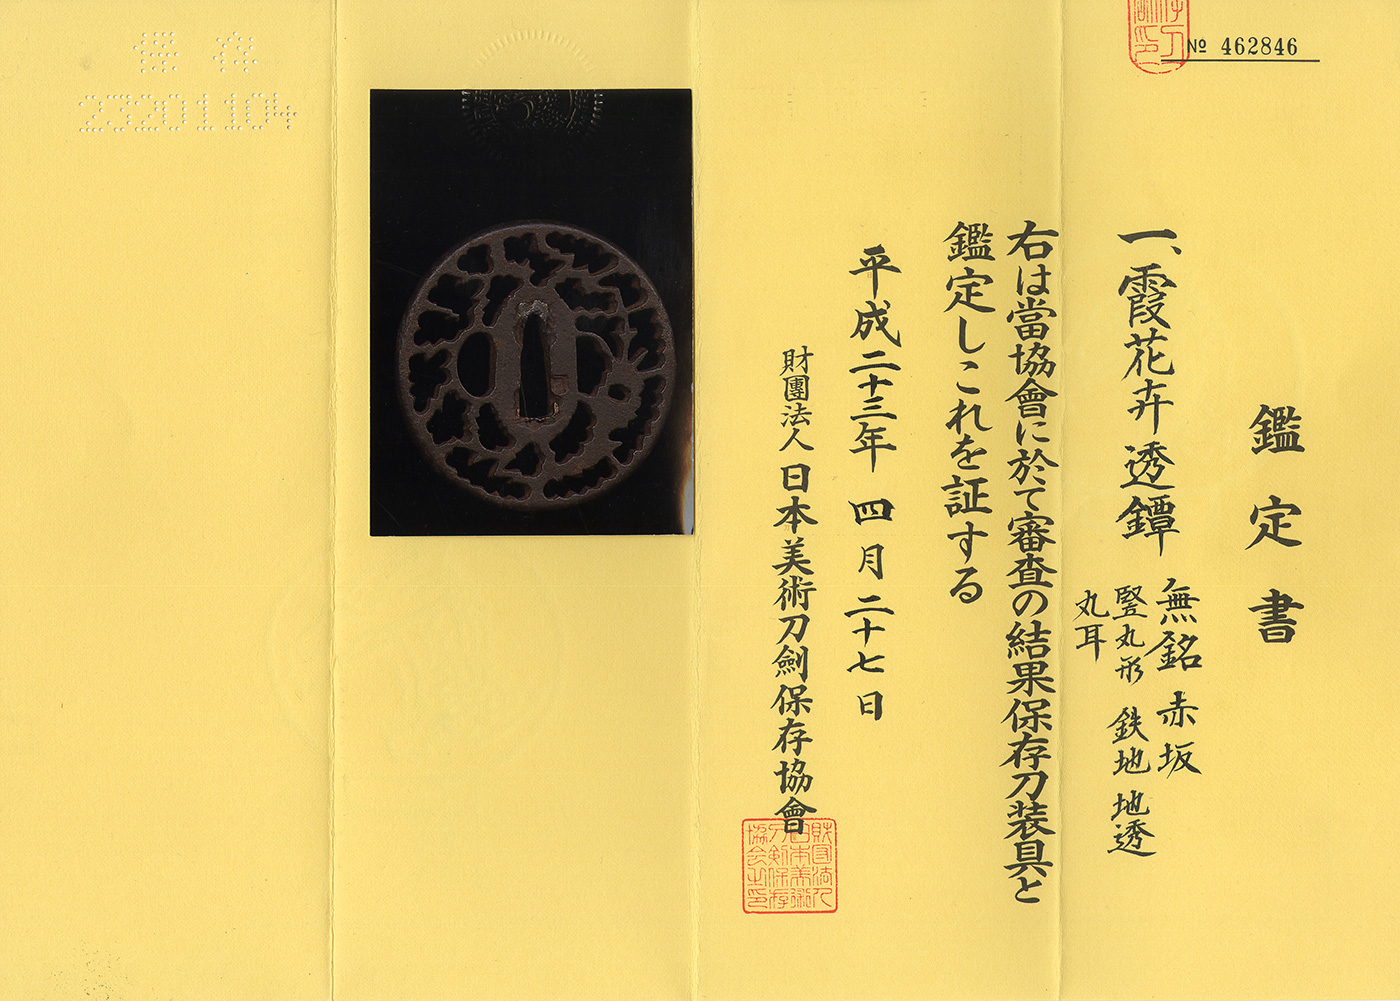 No 462846
鑑定書
一、霞花卉透鐔
無銘 赤坂
竪丸形 鉄地 地透
丸耳
右は當協會に於て審査の結果保存刀装具と
鑑定しこれを証する
平成二十三年 四月二十七日
財團法人 日本美術刀劍保存協會
財団法人
日本美術
刀剣保存
協会之印
保存
23201104